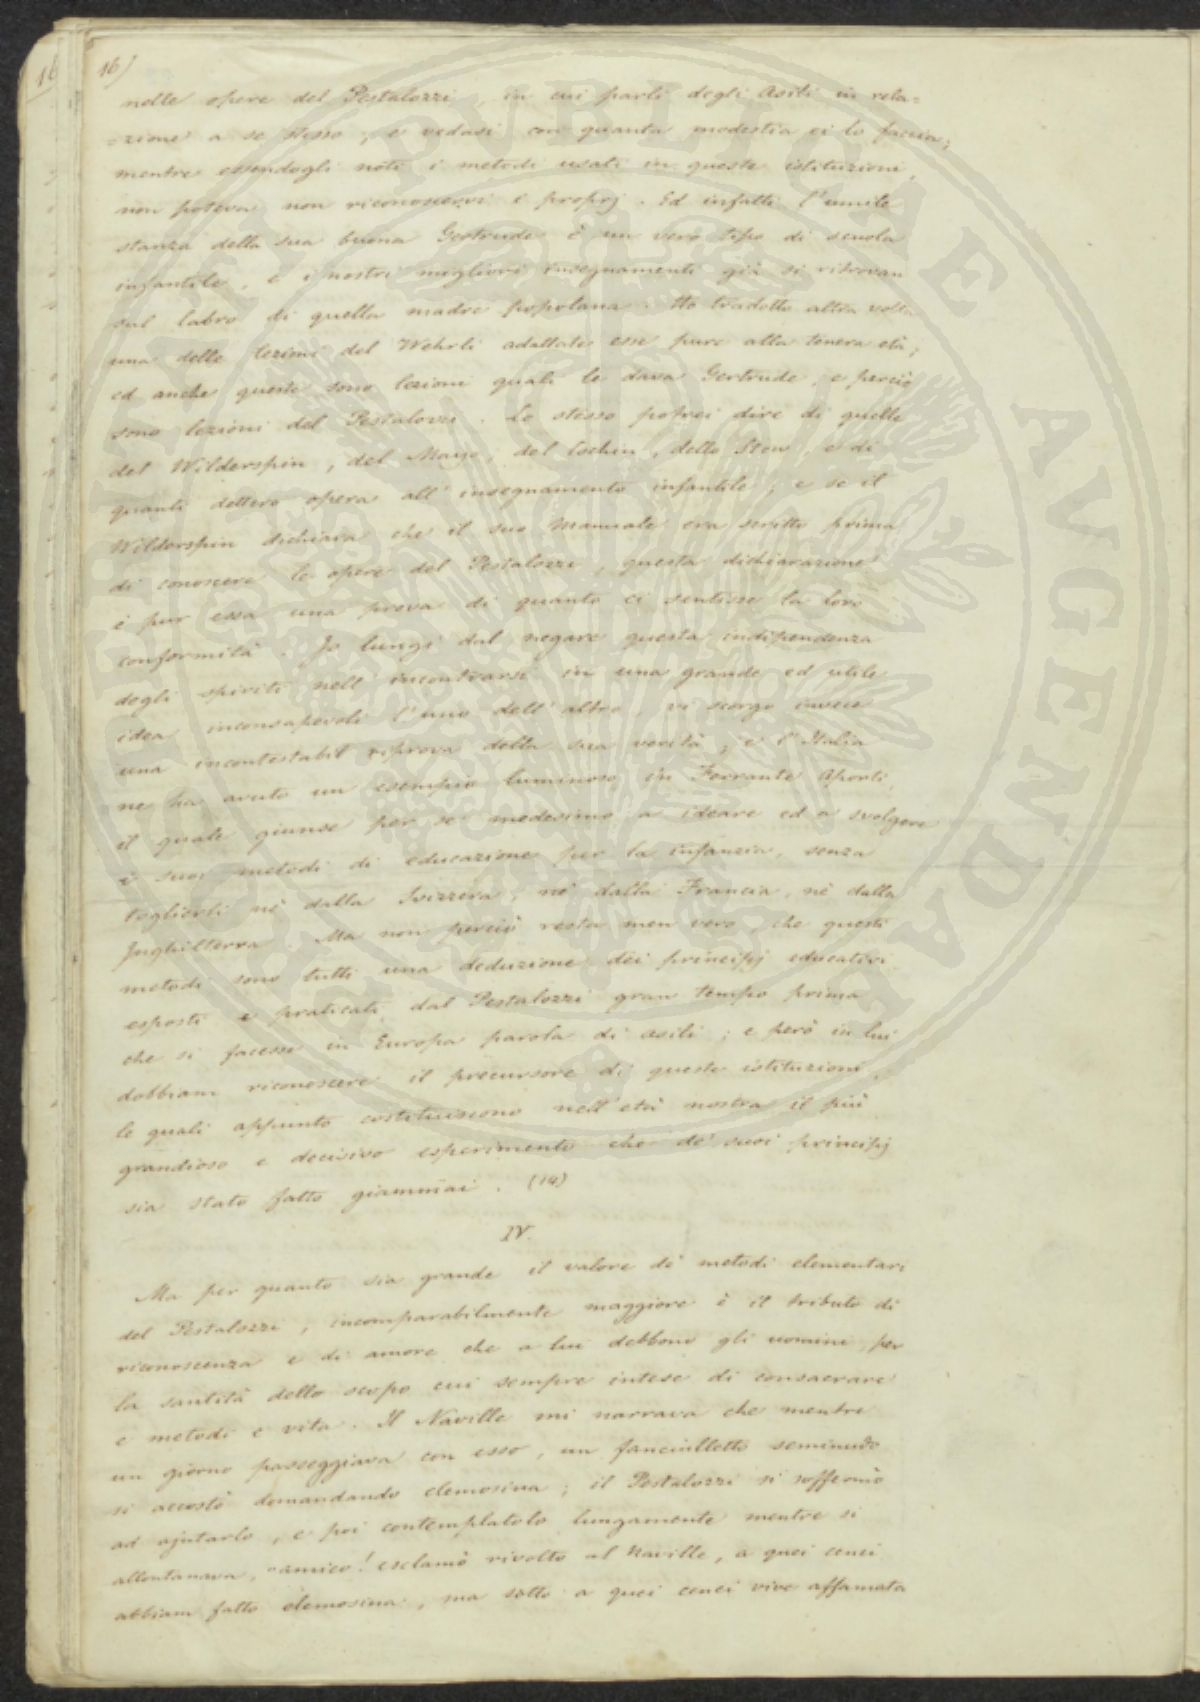 16)
nelle opere del Pestalozzi, in cui parli degli Asili in rela=
=zione a se stesso; e vedasi con quanta modestia ei lo faccia;
mentre essendogli noti i metodi usati in queste istituzioni,
non poteva non riconoscervi i proprj. Ed infatti l'umile
stanza della sua buona Gertrude è un vero tipo di scuola
infantile, e i nostri migliori insegnamenti già si ritrovan
sul labro di quella madre popolana. Ho tradotto altra volta
una delle lezioni del Wehrli adattate esse pure alla tenera età;
ed anche queste sono lezioni quali le dava Gertrude, e perciò
sono lezioni del Pestalozzi. Lo stesso potrei dire di quelle
del Wilderspin, del Mayo, del Cochin, dello Stow, e di
quanti dettero opera all'insegnamento infantile; e se il
Wilderspin dichiara che il suo Manuale era scritto prima
di conoscere le opere del Pestalozzi, questa dichiarazione
è pur essa una prova di quanto ei sentisse la loro
conformità. Io lungi dal negare questa indipendenza
degli spiriti nell'incontrarsi in una grande ed utile
idea inconsapevoli l'uno dell'altro, vi scorgo invece
una incontestabil riprova della sua verità; e l'Italia
ne ha avuto un esempio luminoso in Ferrante Aporti,
il quale giunse per se medesimo a ideare ed a svolgere
i suoi metodi di educazione per la infanzia, senza
togliergli nè dalla Svizzera, nè dalla Francia, nè dalla
Inghilterra. Ma non perciò resta men vero che questi
metodi sono tutti una deduzione dei principj educativi
esposti e praticati dal Pestalozzi gran tempo prima
che si facesse in Europa parola di asili; e però in lui
dobbiam riconoscere il precursore di queste istituzioni,
le quali appunto costituiscono nell'età nostra il più
grandioso e decisivo esperimento che de' suoi principj
sia stato fatto giammai. (14)
IV.
Ma per quanto sia grande il valore de' metodi elementari
del Pestalozzi, incomparabilmente maggiore è il tributo di
riconoscenza e di amore che a lui debbono gli uomini per
la santità dello scopo cui sempre intese di consacrare
e metodi e vita. Il Naville mi narrava che mentre
un giorno passeggiava con esso, un fanciulletto seminudo
si accostò domandando elemosina; il Pestalozzi si soffermò
ad ajutarlo, e poi contemplatolo lungamente mentre si
allontanava, "amico! esclamò rivolto al Naville, a quei cenci
abbiam fatto elemosina, ma sotto a quei cenci vive affamata